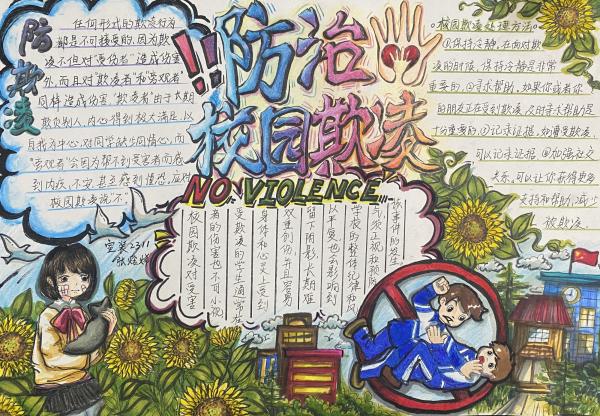 防欺凌
任何形式的欺凌行为
都是不可接受的,因为欺
凌不但对"受伤者"造成伤害
外,而且对"欺凌者"和"旁观者"
同样造成伤害."欺凌者"由于长期
欺负别人,内心得到极大满足,以
自我为中心,对同学缺少同情心,而
"旁观者"会因为帮不到受害者而感
到内疚、不安,甚至感到惶恐,应对
校园欺凌说不.
!!防治
校园欺凌
NO VIOLENCE
校园欺凌处理方法。
①保持冷静,在面对欺
凌的时候,保持冷静是非常
重要的,②寻求帮助,如果你或者你
的朋友正在受到欺凌,及时寻求帮助是
十分重要的.③记录证据,如遭受欺凌,
可以记录证据,④加强社交
关系,可以让你获得更多
支持和帮助,减少
被欺凌.
校园欺凌对受害
者的伤害也不可小视
受欺凌的学生通常在
身体和心灵上受到
双重创伤并且容易
留下阴影,长期难
以平复,也会影响到
学校的整体纪律和风
气,须重视和预防
该事件的发生
2311